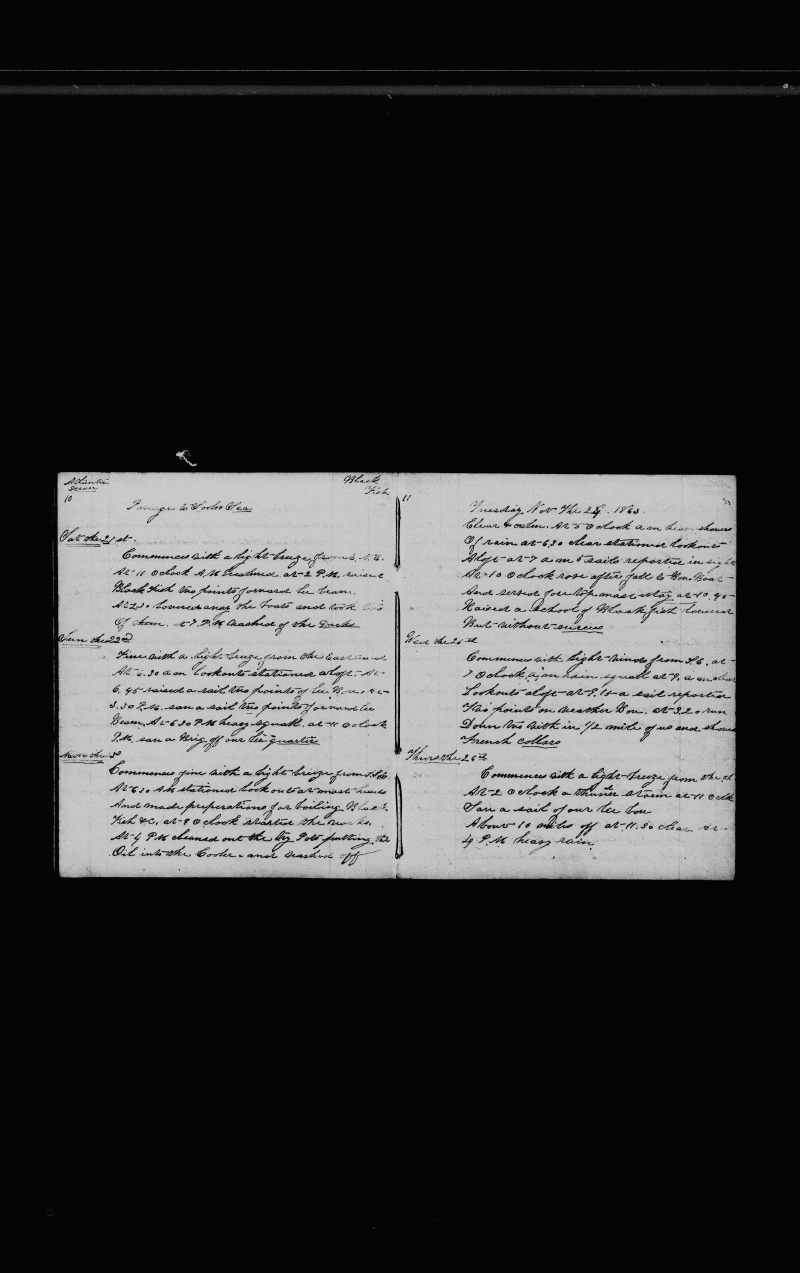 Atlantic
Ocean
10
Black
Fish
Passage to Sooloo Sea
Sat the 21st
Commences with a light breeze from E. N. E.
At 11 O clock A.M breatened at 2 P.M. raised
Black Fish two points forward lee beam
At 2.30 lowered away the boats and took two
Of them at 7 P.M washed of the Decks
Sun the 22nd
Fine with a light breeze from the Eastward
At 6.30 am lookouts stationed aloft. At
6.45 raised a sail two points of lee Bow. at
3.30 P.M. saw a sail two points forward lee
Beam. At 6.30 P.M heavy squall. at 11 O clock
P.M. saw a Brig off our lee quarter
Commences fine with a light breeze from S.S.E.
At 6.30 AM stationed look outs at mast heads
And made preparations for boiling Black
Fish &c. at 8 O clock started the works.
At 4 P.M cleaned out the try Pots putting the
Oil into the Cooler and washed off
11
Tuesday Nov the 24. 1863
Clear & calm. At 5 O clock a m heavy showers
Of rain at 6.30 clear stationed lookouts
Aloft at 7 a m 5 sails reported in sight
At 10 O clock rose after fall to Bow Boat
And served fore top mast stay at 10.40
Raised a school of Black fish lowered
But without success
Wed the 25th
Commences with light winds from S.E. at
7 O clock a m rain squall at 9. a m clear
Lookouts aloft at 9.10 a sail reported
Two points on weather Bow. at 3.20 run
Down too with in 1/2 mile of us and showed
French collars
Thurs the 26th
Commences with a light breeze from the
At 2 O clock a thunder storm at 11 O clk
Saw a sail of our lee bow
About 10 miles off at 11.30 clear At
4 P.M heavy rain